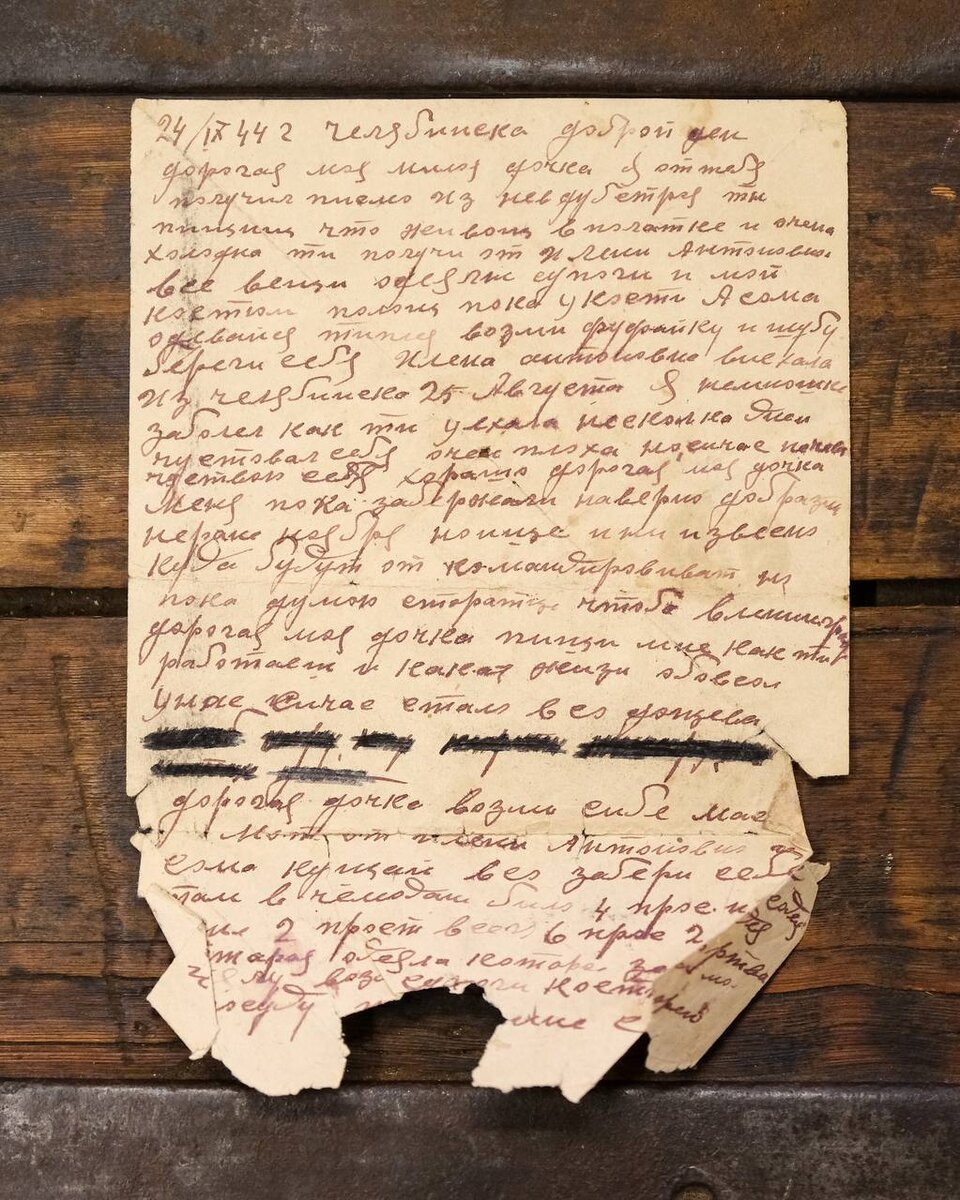 24/IX 44 г челябинска доброй ден
дорогая моя милоя дочка я от тебя
получил писмо из
пишиш что живош в полатке и очень
холодна ти получи от Илени Антоновни
все вещи одеялы сапоги и мой
костюм полощ пока у кости А сома
одевайся типло возми фуфайку и шубу
береги себя Илена антоновна виехала
из челябинска 25 Августа я немношко
заболел как ти уехала несколко дней
чуетовал себя очен плоха но сичас
чуствою себя хорашо дорогая моя дочка
меня пока задержали наверно
неране ноября но ище и ни извесно
куда будут от командировиват но
пока думою старатся чтобы в
дорогая моя дочка пиши мне как ти
работаеш и какая жизн обовсем
у нас сичас стало все дошева
дорогая дочка возми сибе мас
от илени Антоновни
сома кушай все забери себе
там в чемодан било 4 прос и
2 прост всего 6 прос 2
старая одеяла которе
вози сапоги кост